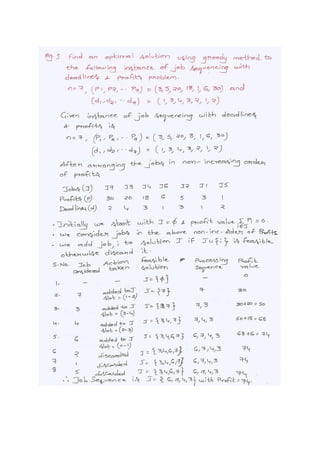 Pg 3 Find an optimal solution using greedy method to
the following instance of job sequencing with
deadlines & profits problem.
n=7, (P1, P2, -- P7) = (3, 5, 20, 18, 1, 6, 30) and
(d1, d2, -- d7) = (1, 3, 4, 3, 2, 1, 2)
Given instance of job sequencing with deadlines
& profits is
n=7, (P1, P2, -- P7) = (3, 5, 20, 18, 1, 6, 30)
(d1, d2, -- d7) = (1, 3, 4, 3, 2, 1, 2)
After arranging the jobs in non-increasing order
of profits
Jobs (J) J7 J3 J4 J6 J2 J1 J5
Profits (P) 30 20 18 6 5 3 1
Deadlines (d) 2 4 3 1 3 1 2
- Initially we start with J = ϕ & profit value Σ Pi = 0.
i∈J
- we consider jobs in the above non-inc. order of Profits
- we add job, i to solution J if J∪{i} is feasible
otherwise discard it.
S.No. Job Action feasible Processing Profit
considered taken solution sequence value
1. - - J = {ϕ} - 0
2. 7 added to J J = {7} 7 30
slot = (1-2)
3. 3 added to J J = {3,7} 7, 3 30+20=50
slot = (3-4)
4. 4 added to J J = {3,4,7} 7, 4, 3 50+18=68
slot = (2-3)
5. 6 added to J J = {3,4,6,7} 6, 7, 4, 3 68+6=74
slot = (0-1)
6 2 discarded J = {3,4,6,7} 6, 7, 4, 3 74
7 1 discarded J = {3,4,6,7} 6, 7, 4, 3 74
8 5 discarded J = {3,4,6,7} 6, 7, 4, 3 74
∴ Job Sequence is J = {6, 7, 4, 3} with Profit = 74.